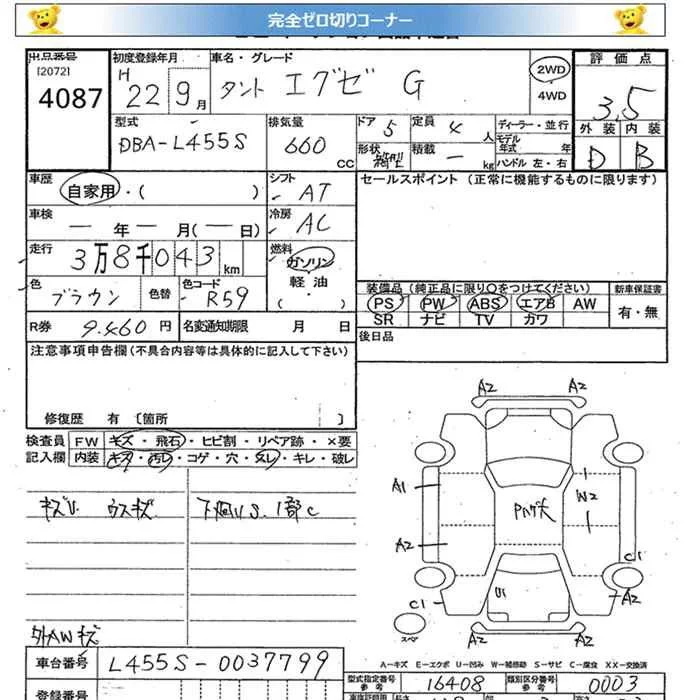 完全ゼロ切りコーナー
出品番号 初度登録年月 車名・グレード 評価点
[2072]
4087
H 22年 9月 タント エグゼ G 2WD 4WD 3.5
型式 排気量 ドア 5 定員 4人 ディーラー・並行 外装 内装
DBA-L455S 660 CC 形状 積載 - kg モデル年式 年 ハンドル 左・右 D B
車歴 自家用・( ) シフト AT セールスポイント(正常に機能するものに限ります)
車検 - 年 - 月(- 日) 冷房 AC
走行 3万8千043km 燃料 ガソリン 軽油・( )
色 ブラウン 色替 色コード R59
装備品(純正品に限り○をつけてください) 新車保証書
PS PW ABS エアB AW 有・無
SR ナビ TV カワ
R券 9.460円 名変通知期限 月 日 後日品
注意事項申告欄(不具合内容等は具体的に記入して下さい)
修復歴 有 〔箇所 〕
検査員 FW キズ・飛石・ヒビ割・リペア跡・×要
記入欄 内装 キズ・汚レ・コゲ・穴・スレ・キレ・破レ
キズU ウスキズ
外AWキズ
A2 A2
A1 W2
A2 C1
U1
C1 A2
スペア
A2 A2
A-キズ E-エクボ U-凹み W-補修跡 S-サビ C-腐食 XX-交換済
車台番号 L455S-0037799
型式指定番号 参考 16408 類別区分番号 参考 0003
登録番号